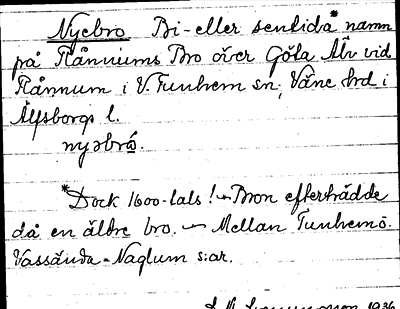 Nyebro Bi- eller sentida* namn
på Rånnums Bro över Göta Älv vid
Rånnum i V. Tunhem sn, Väne hrd i
Älfsborgs l.
nyəbró.
*Dock 1600-tals! Bron efterträdde
då en äldre bro. Mellan Tunhem o.
Vassända-Naglum s:ar.
1936